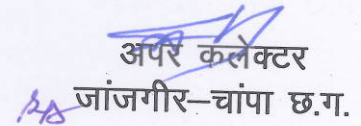 अपर कलेक्टर
जांजगीर–चांपा छ.ग.